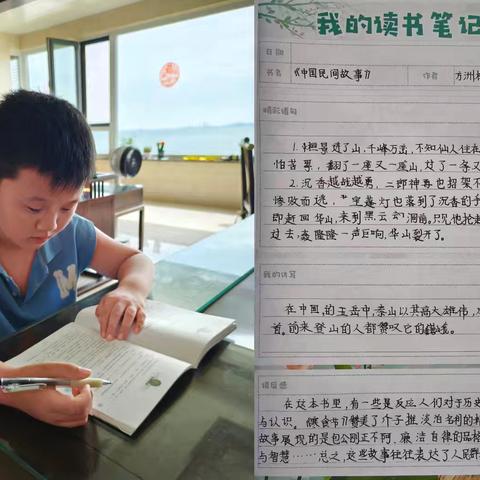 我的读书笔记
日期
书名 《中国民间故事》 作者 方洲
精彩语句
1.担景进了山,千峰万岳,不知仙人住在
怕苦累,翻了一座又一座山,过了一条又
2.沉香越战越勇,二郎神再也招架不
惨败而逃,宝莲灯也落到了沉香的手
即赶回华山,来到黑云的洞府。只见他抡起
过去,轰隆隆一声巨响,华山裂开了。
我的仿写
在中国的五岳中,泰山以其高大雄伟,
首。前来登山的人都赞叹它的
读后感
在这本书里,有一些是反应人们对于历史
与认识。《寒食节》赞美了介子推淡泊名利的
故事展现的是包公刚正不阿、廉洁自律的品格
与智慧……总之,这些故事往往表达了人民群
M